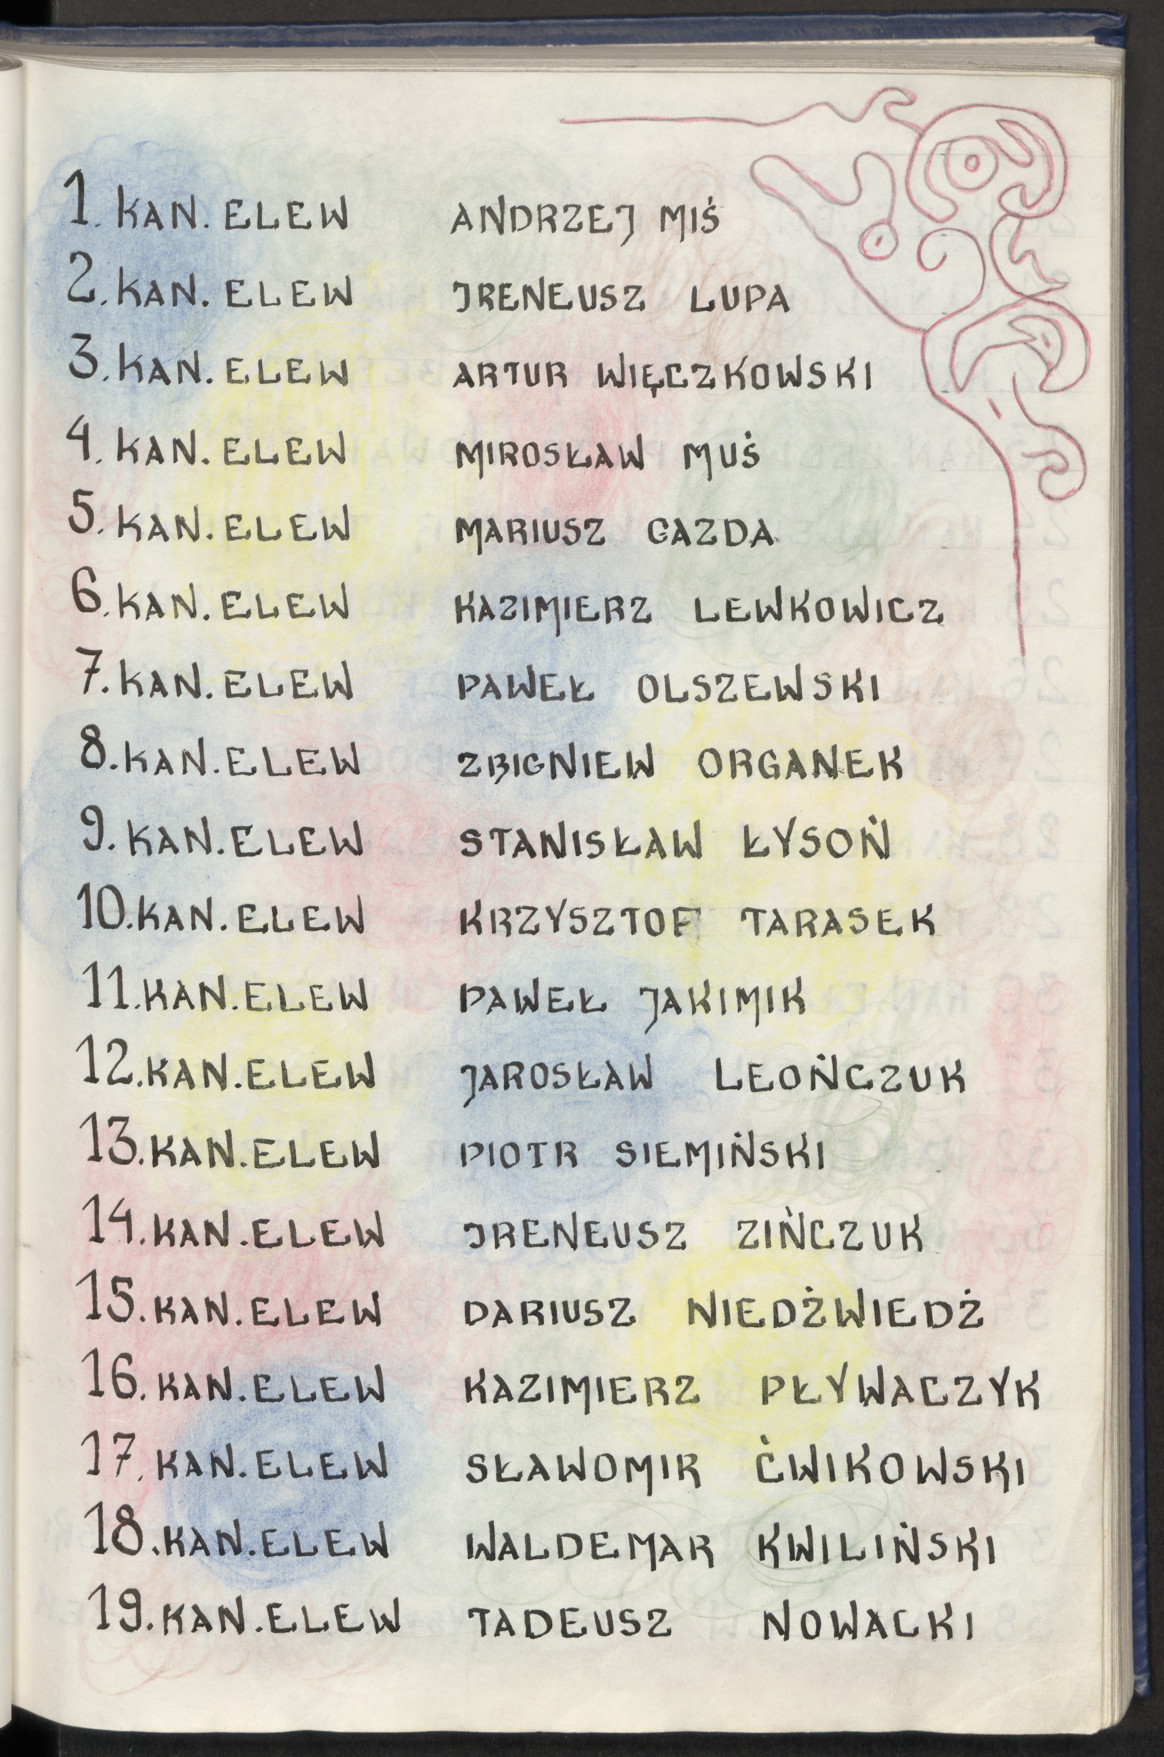 1. KAN. ELEW ANDRZEJ MIŚ
2. KAN. ELEW IRENEUSZ LUPA
3. KAN. ELEW ARTUR WIĘCZKOWSKI
4. KAN. ELEW MIROSŁAW MUŚ
5. KAN. ELEW MARIUSZ GAZDA
6. KAN. ELEW KAZIMIERZ LEWKOWICZ
7. KAN. ELEW PAWEŁ OLSZEWSKI
8. KAN. ELEW ZBIGNIEW ORGANEK
9. KAN. ELEW STANISŁAW ŁYSOŃ
10. KAN. ELEW KRZYSZTOF TARASEK
11. KAN. ELEW PAWEŁ JAKIMIK
12. KAN. ELEW JAROSŁAW LEOŃCZUK
13. KAN. ELEW PIOTR SIEMIŃSKI
14. KAN. ELEW IRENEUSZ ZIŃCZUK
15. KAN. ELEW DARIUSZ NIEDŹWIEDŹ
16. KAN. ELEW KAZIMIERZ PŁYWACZYK
17. KAN. ELEW SŁAWOMIR ĆWIKOWSKI
18. KAN. ELEW WALDEMAR KWILIŃSKI
19. KAN. ELEW TADEUSZ NOWACKI